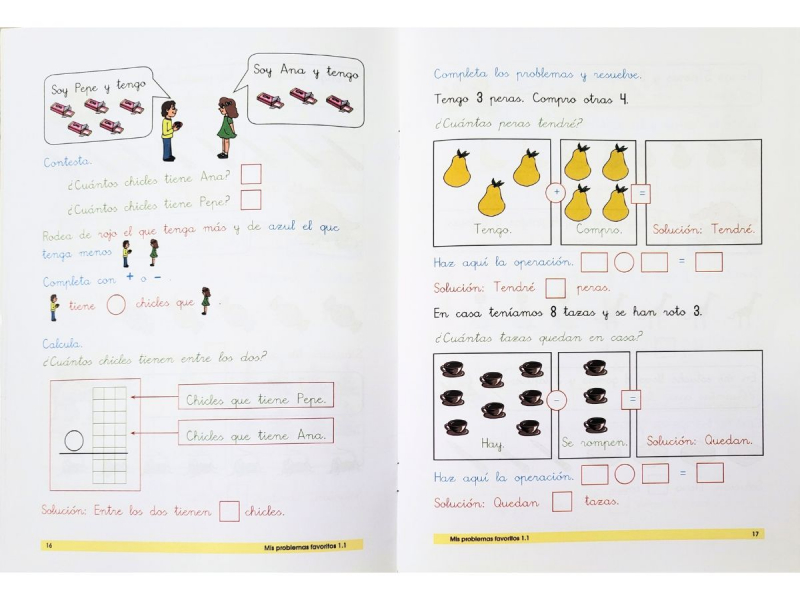 Soy Pepe y tengo
Soy Ana y tengo
Contesta.
¿Cuántos chicles tiene Ana?
¿Cuántos chicles tiene Pepe?
Rodea de rojo el que tenga más y de azul el que
tenga menos
Completa con + o -.
tiene chicles que .
Calcula.
¿Cuántos chicles tienen entre los dos?
Chicles que tiene Pepe.
Chicles que tiene Ana.
Solución: Entre los dos tienen chicles.
16 Mis problemas favoritos 1.1
Completa los problemas y resuelve.
Tengo 3 peras. Compro otras 4.
¿Cuántas peras tendré?
+ =
Tengo. Compro. Solución: Tendré.
Haz aquí la operación. =
Solución: Tendré peras.
En casa teníamos 8 tazas y se han roto 3.
¿Cuántas tazas quedan en casa?
- =
Hay. Se rompen. Solución: Quedan.
Haz aquí la operación. =
Solución: Quedan tazas.
Mis problemas favoritos 1.1 17